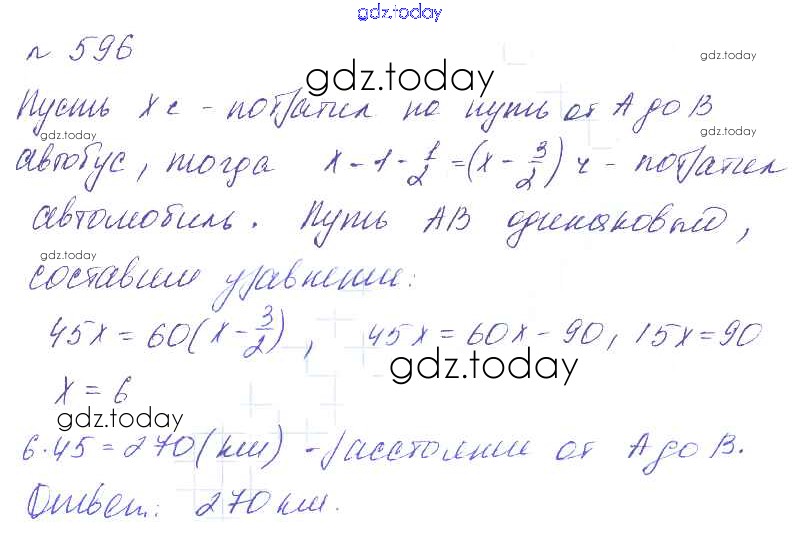 gdz.today
№ 596
gdz.today
gdz.today
Пусть x ч - потратил на путь от A до B
gdz.today
автобус, тогда x - 1 - 1/2 = (x - 3/2) ч - потратил
автомобиль. Путь AB одинаковый,
gdz.today
gdz.today
составим уравнение:
45x = 60(x - 3/2), 45x = 60x - 90, 15x = 90
gdz.today
gdz.today
x = 6
gdz.today
6·45 = 270 (км) - расстояние от A до B.
gdz.today
Ответ: 270 км.